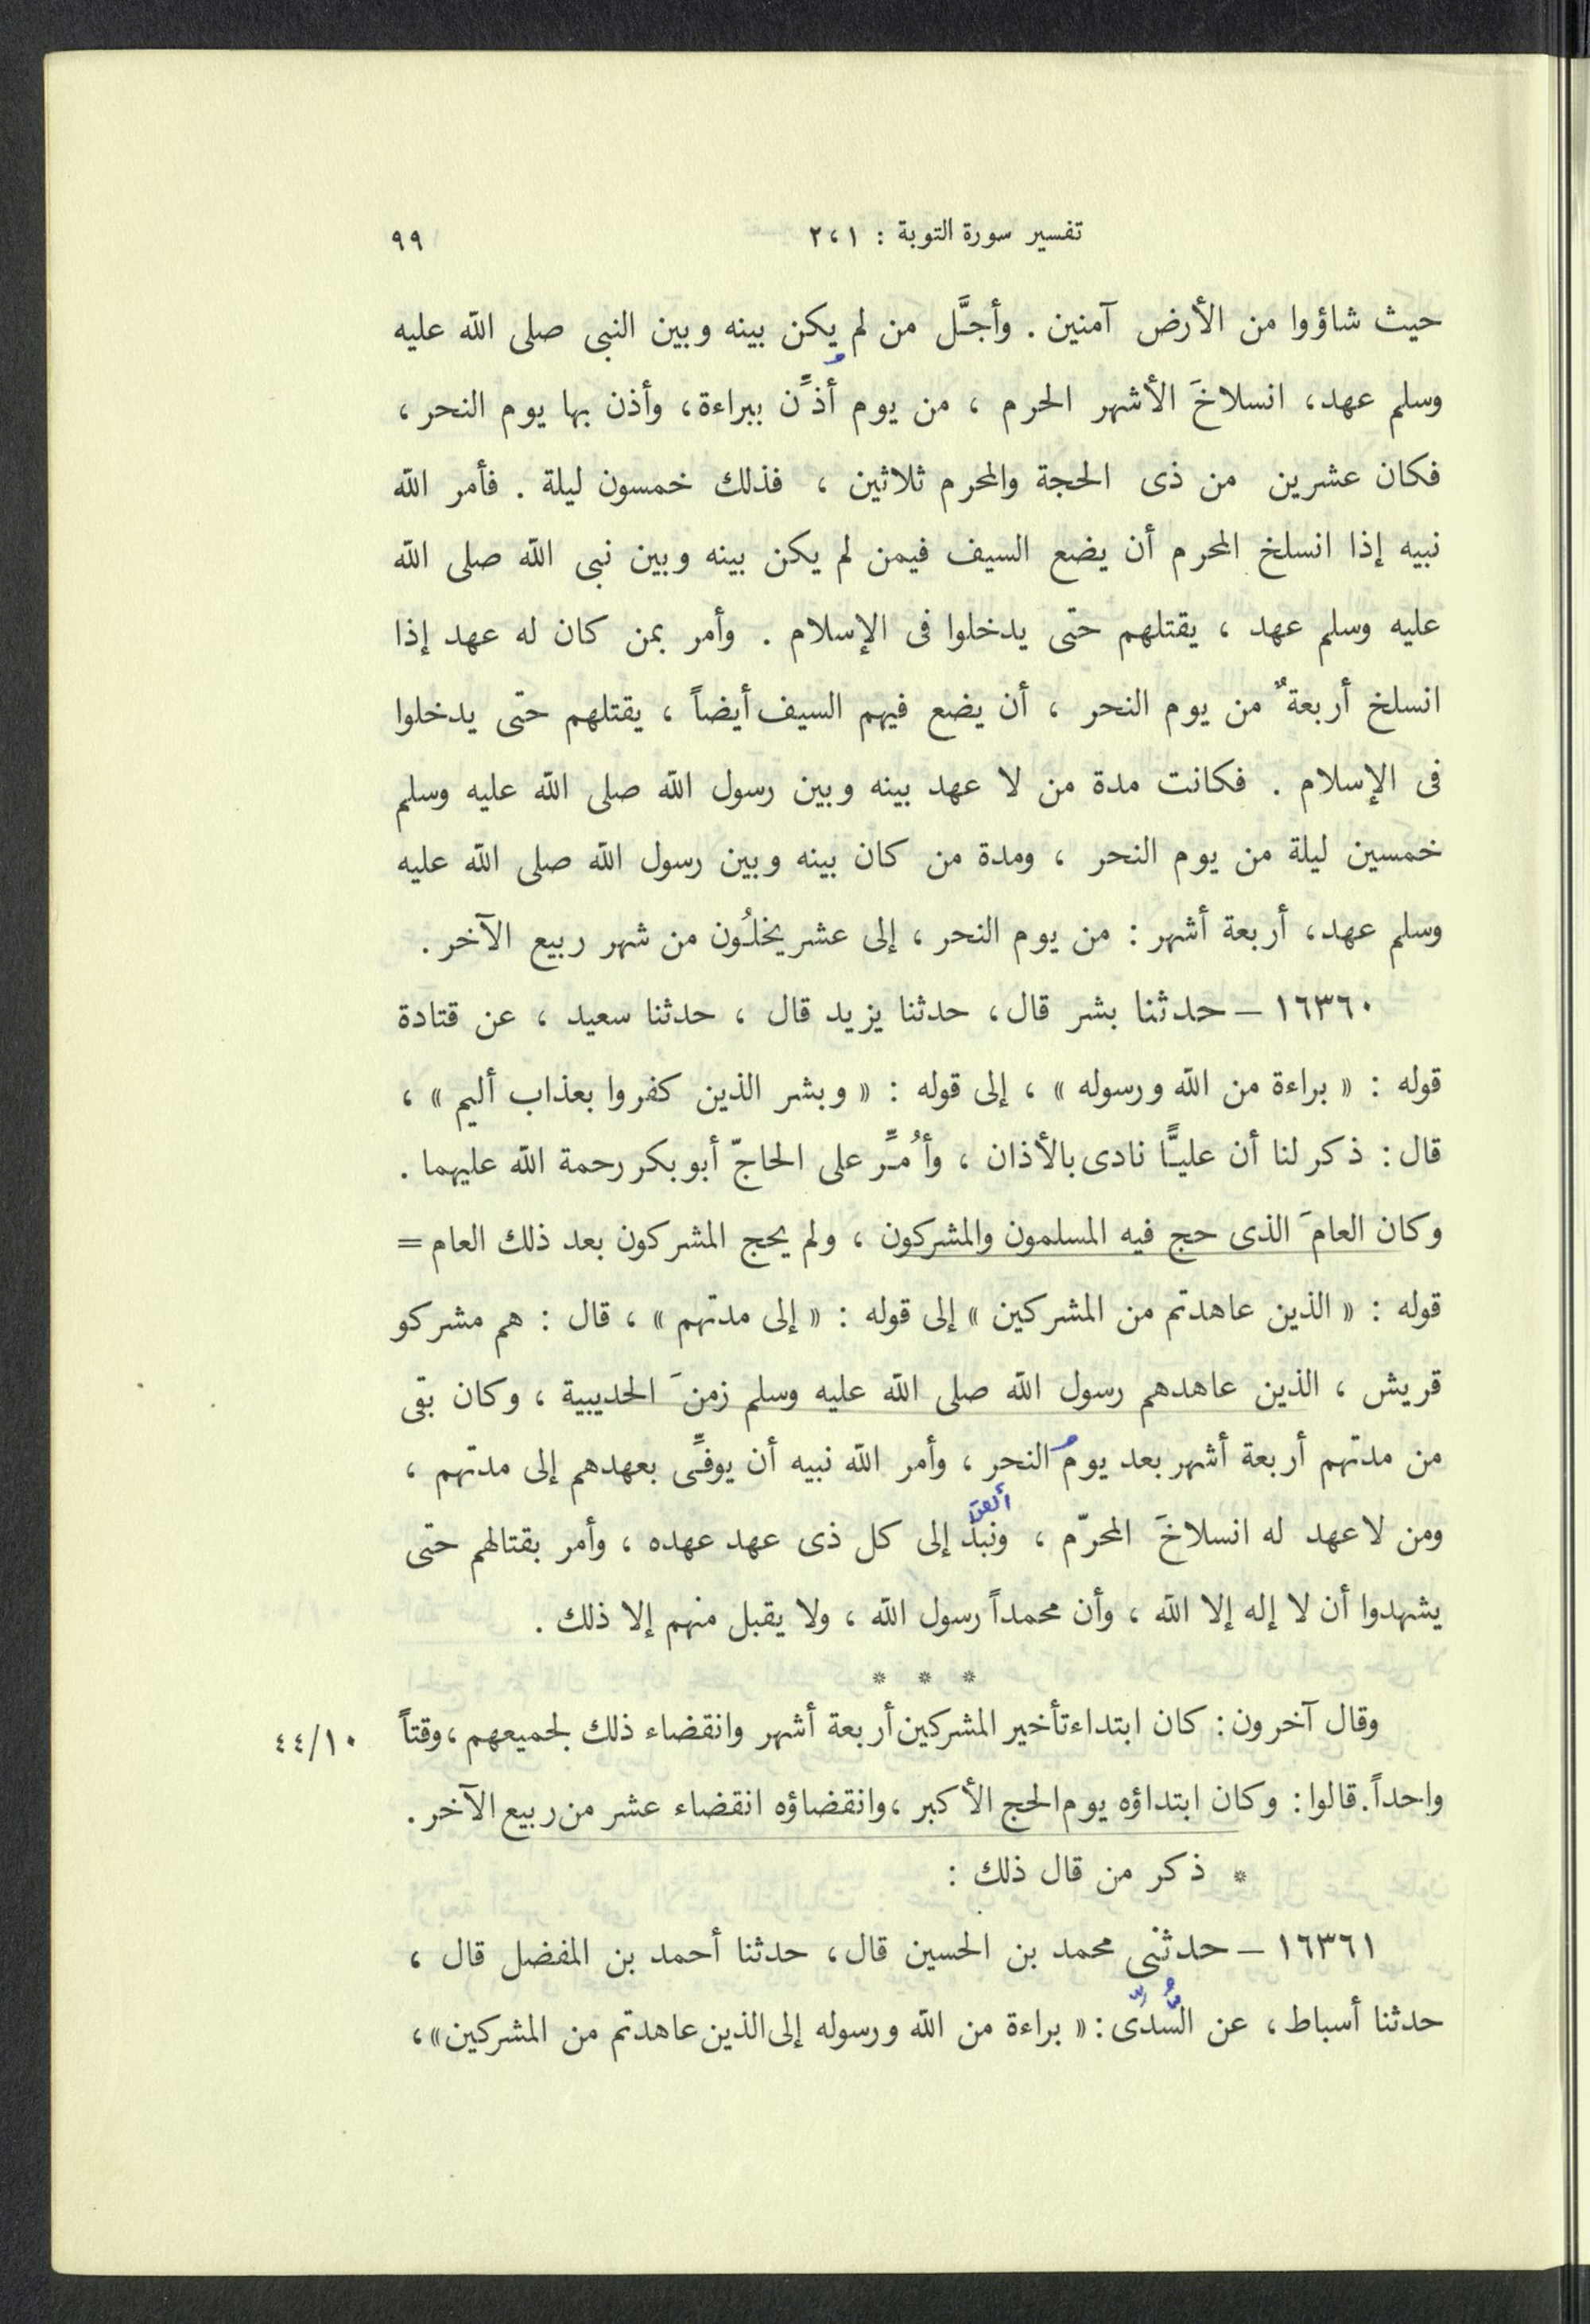 تفسير سورة التوبة : ١ ، ٢ ٩٩
حيث شاؤوا من الأرض آمنين . وأجَّل من لم يكن بينه وبين النبى صلى الله عليه
وسلم عهد، انسلاخَ الأشهر الحرم ، من يوم أُذِّن ببراءة، وأذن بها يوم النحر ،
فكان عشرين من ذى الحجة والمحرم ثلاثين ، فذلك خمسون ليلة . فأمر الله
نبيه إذا انسلخ المحرم أن يضع السيف فيمن لم يكن بينه وبين نبى الله صلى الله
عليه وسلم عهد ، يقتلهم حتى يدخلوا فى الإسلام . وأمر بمن كان له عهد إذا
انسلخ أربعةٌ من يوم النحر ، أن يضع فيهم السيف أيضاً ، يقتلهم حتى يدخلوا
فى الإسلام . فكانت مدة من لا عهد بينه وبين رسول الله صلى الله عليه وسلم
خمسين ليلة من يوم النحر ، ومدة من كان بينه وبين رسول الله صلى الله عليه
وسلم عهد، أربعة أشهر : من يوم النحر ، إلى عشر يخلُون من شهر ربيع الآخر .
١٦٣٦٠ – حدثنا بشر قال، حدثنا يزيد قال ، حدثنا سعيد ، عن قتادة
قوله : « براءة من الله ورسوله » ، إلى قوله : « وبشر الذين كفروا بعذاب أليم » ،
قال : ذكر لنا أن عليًّا نادى بالأذان ، وأُمِّر على الحاجّ أبو بكر رحمة الله عليهما .
وكان العامَ الذى حج فيه المسلمون والمشركون ، ولم يحج المشركون بعد ذلك العام =
قوله : « الذين عاهدتم من المشركين » إلى قوله : « إلى مدتهم » ، قال : هم مشركو
قريش ، الذين عاهدهم رسول الله صلى الله عليه وسلم زمنَ الحديبية ، وكان بقى
من مدتهم أربعة أشهر بعد يوم النحر ، وأمر الله نبيه أن يوفِّى بعهدهم إلى مدتهم ،
ألقى
ومن لا عهد له انسلاخَ المحرّم ، ونبذ إلى كل ذى عهد عهده ، وأمر بقتالهم حتى
يشهدوا أن لا إله إلا الله ، وأن محمداً رسول الله ، ولا يقبل منهم إلا ذلك .
* * *
وقال آخرون : كان ابتداء تأخير المشركين أربعة أشهر وانقضاء ذلك لجميعهم ، وقتاً ١٠/٤٤
واحداً. قالوا : وكان ابتداؤه يوم الحج الأكبر ، وانقضاؤه انقضاء عشر من ربيع الآخر .
* ذكر من قال ذلك :
١٦٣٦١ – حدثنى محمد بن الحسين قال، حدثنا أحمد بن المفضل قال ،
حدثنا أسباط، عن السُّدِّى : « براءة من الله ورسوله إلى الذين عاهدتم من المشركين» ،